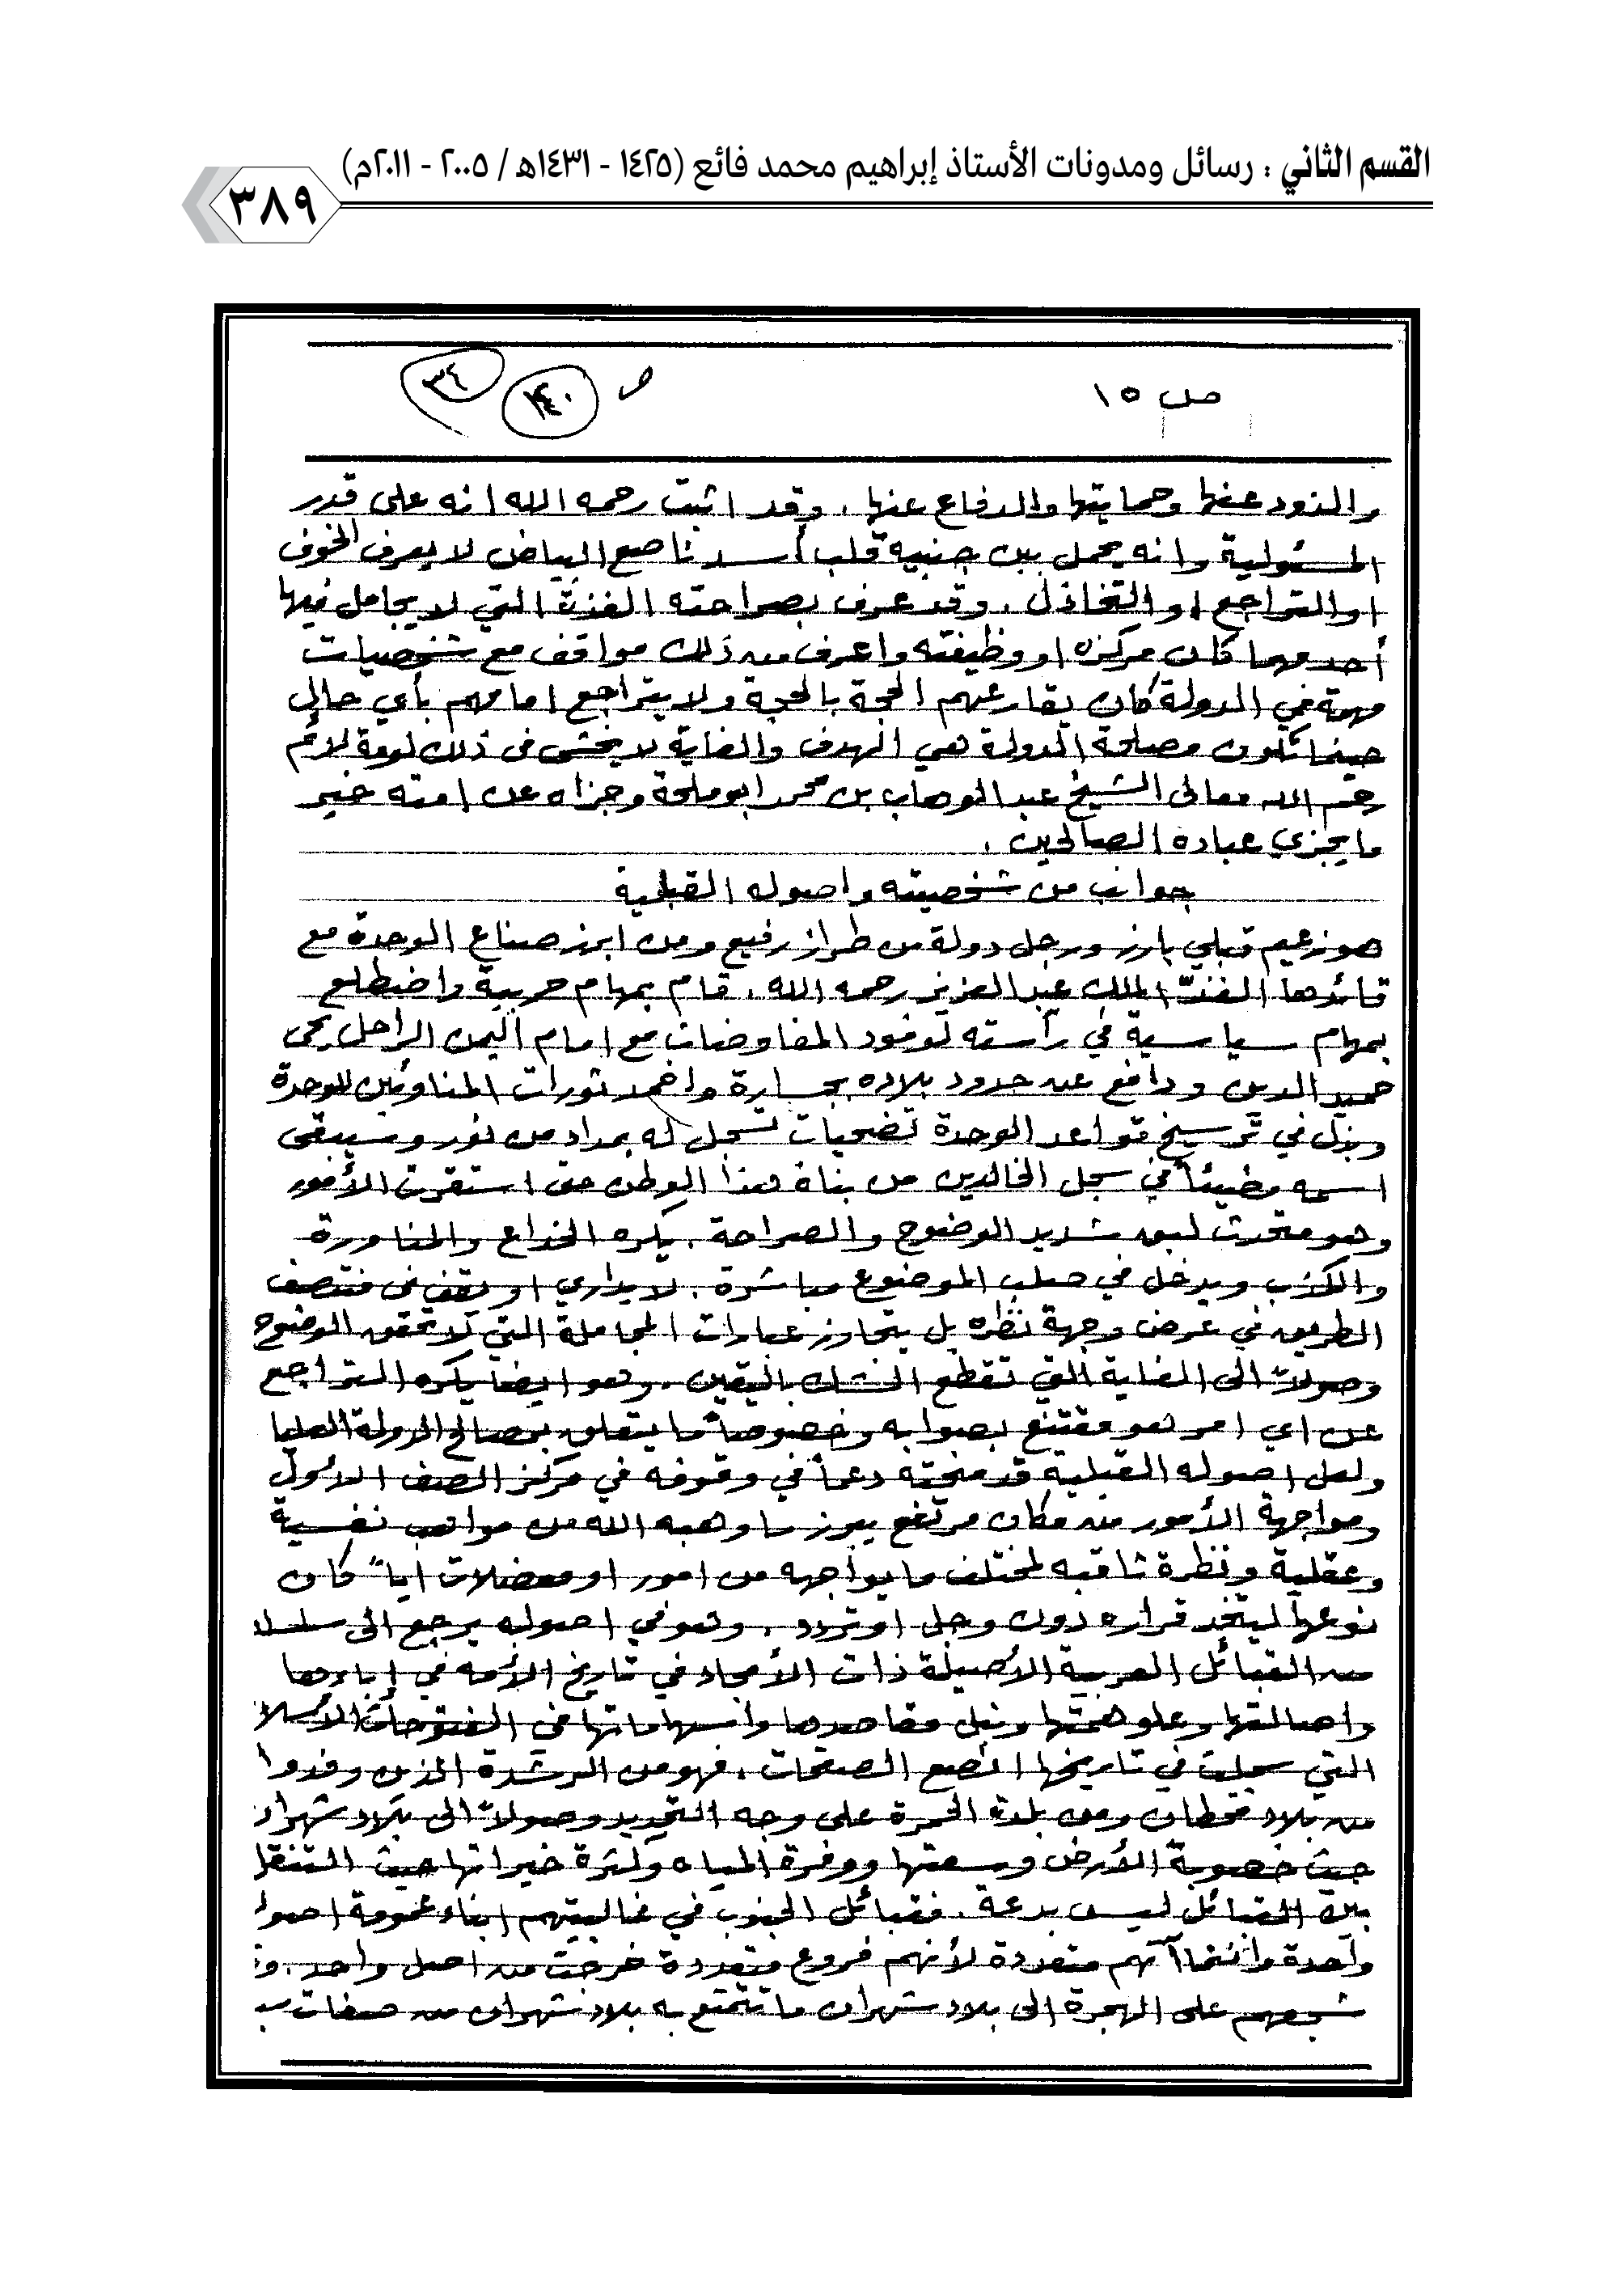 القسم الثاني : رسائل ومدونات الأستاذ إبراهيم محمد فائع (١٤٢٥ - ١٤٣١هـ / ٢٠٠٥ - ٢٠١١م)
٣٨٩
ص ١٥
ص
٣٤
والذود عنها وحمايتها والدفاع عنها . وقد اثبت رحمه الله انه على قدر
المسئولية وانه يحمل بين جنبيه قلب أسد ناصع البياض لا يعرف الخوف
او التراجع او التخاذل . وقد عرف بصراحته الفذة التي لا يجامل فيها
أحد مهما كان مركزه او وظيفته واعرف من ذلك مواقف مع شخصيات
مهمة في الدولة كان يقارعهم الحجة بالحجة ولا يتراجع امامهم بأي حال
حينما تكون مصلحة الدولة هي الهدف والغاية لا يخشى في ذلك لومة لائم
رحم الله معالي الشيخ عبد الوهاب بن محمد ابو ملحة وجزاه عن امته خير
ما يجزي عباده الصالحين .
جوانب من شخصيته واصوله القبلية
هو زعيم قبلي بارز ورجل دولة من طراز رفيع ومن ابرز صناع الوحدة مع
قائدها الفذّ الملك عبد العزيز رحمه الله . قام بمهام حربية واضطلع
بمهام سياسية في رأسته لوفود المفاوضات مع امام اليمن الراحل يحى
حميد الدين ودافع عن حدود بلاده بجسارة واخمد ثورات المناوئين للوحدة
وبذل في ترسيخ قواعد الوحدة تضحيات تسجل له بمداد من نور وسيبقى
اسمه مضيئاً في سجل الخالدين من بناة هذا الوطن حتى استقرت الأمور
وهو متحدث لبق شديد الوضوح والصراحة . يكره الخداع والمناورة
والكذب ويدخل في صلب الموضوع مباشرة . لا يداري او يقف في منتصف
الطريق في عرض وجهة نظره بل يتجاوز عبارات المجاملة التي لا تحقق الوضوح
وصولاً الى الغاية التي تقطع الشك باليقين . وهو ايضا يكره التراجع
عن اي امر هو مقتنع بصوابه وخصوصاً ما يتعلق بمصالح الدولة العليا
ولعل اصوله القبلية قد منحته دعماً في وقوفه في مركز الصف الأول
ومواجهة الأمور من مكان مرتفع يبرز ما وهبه الله من مواهب نفسية
وعقلية ونظرة ثاقبه لمختلف ما يواجهه من امور او معضلات اياً كان
نوعها ليتخذ قراره دون وجل او تردد . وهو في اصوله يرجع الى
من القبائل العربية الأصيلة ذات الأمجاد في تاريخ الأمه في
واصالتها وعلو همتها ونبل مقاصدها واسهاماتها في الفتوحات
التي سجلت في تاريخها انصع الصفحات . فهو من الرشدة الذين وفدوا
من بلاد قحطان ومن بلدة الحمرة على وجه التحديد وصولاً الى بلاد
حيث خصوبة الأرض وسعتها ووفرة المياه وكثرة خيراتها حيث التنقل
بين القبائل ليس بدعة . فقبائل الجنوب في غالبيتهم ابناء عمومة
واحدة وانتماآتهم متعددة لأنهم فروع متعددة خرجت من اصل واحد .
شجعهم على الهجرة الى بلاد شهران ما تتمتع به بلاد شهران من صفات